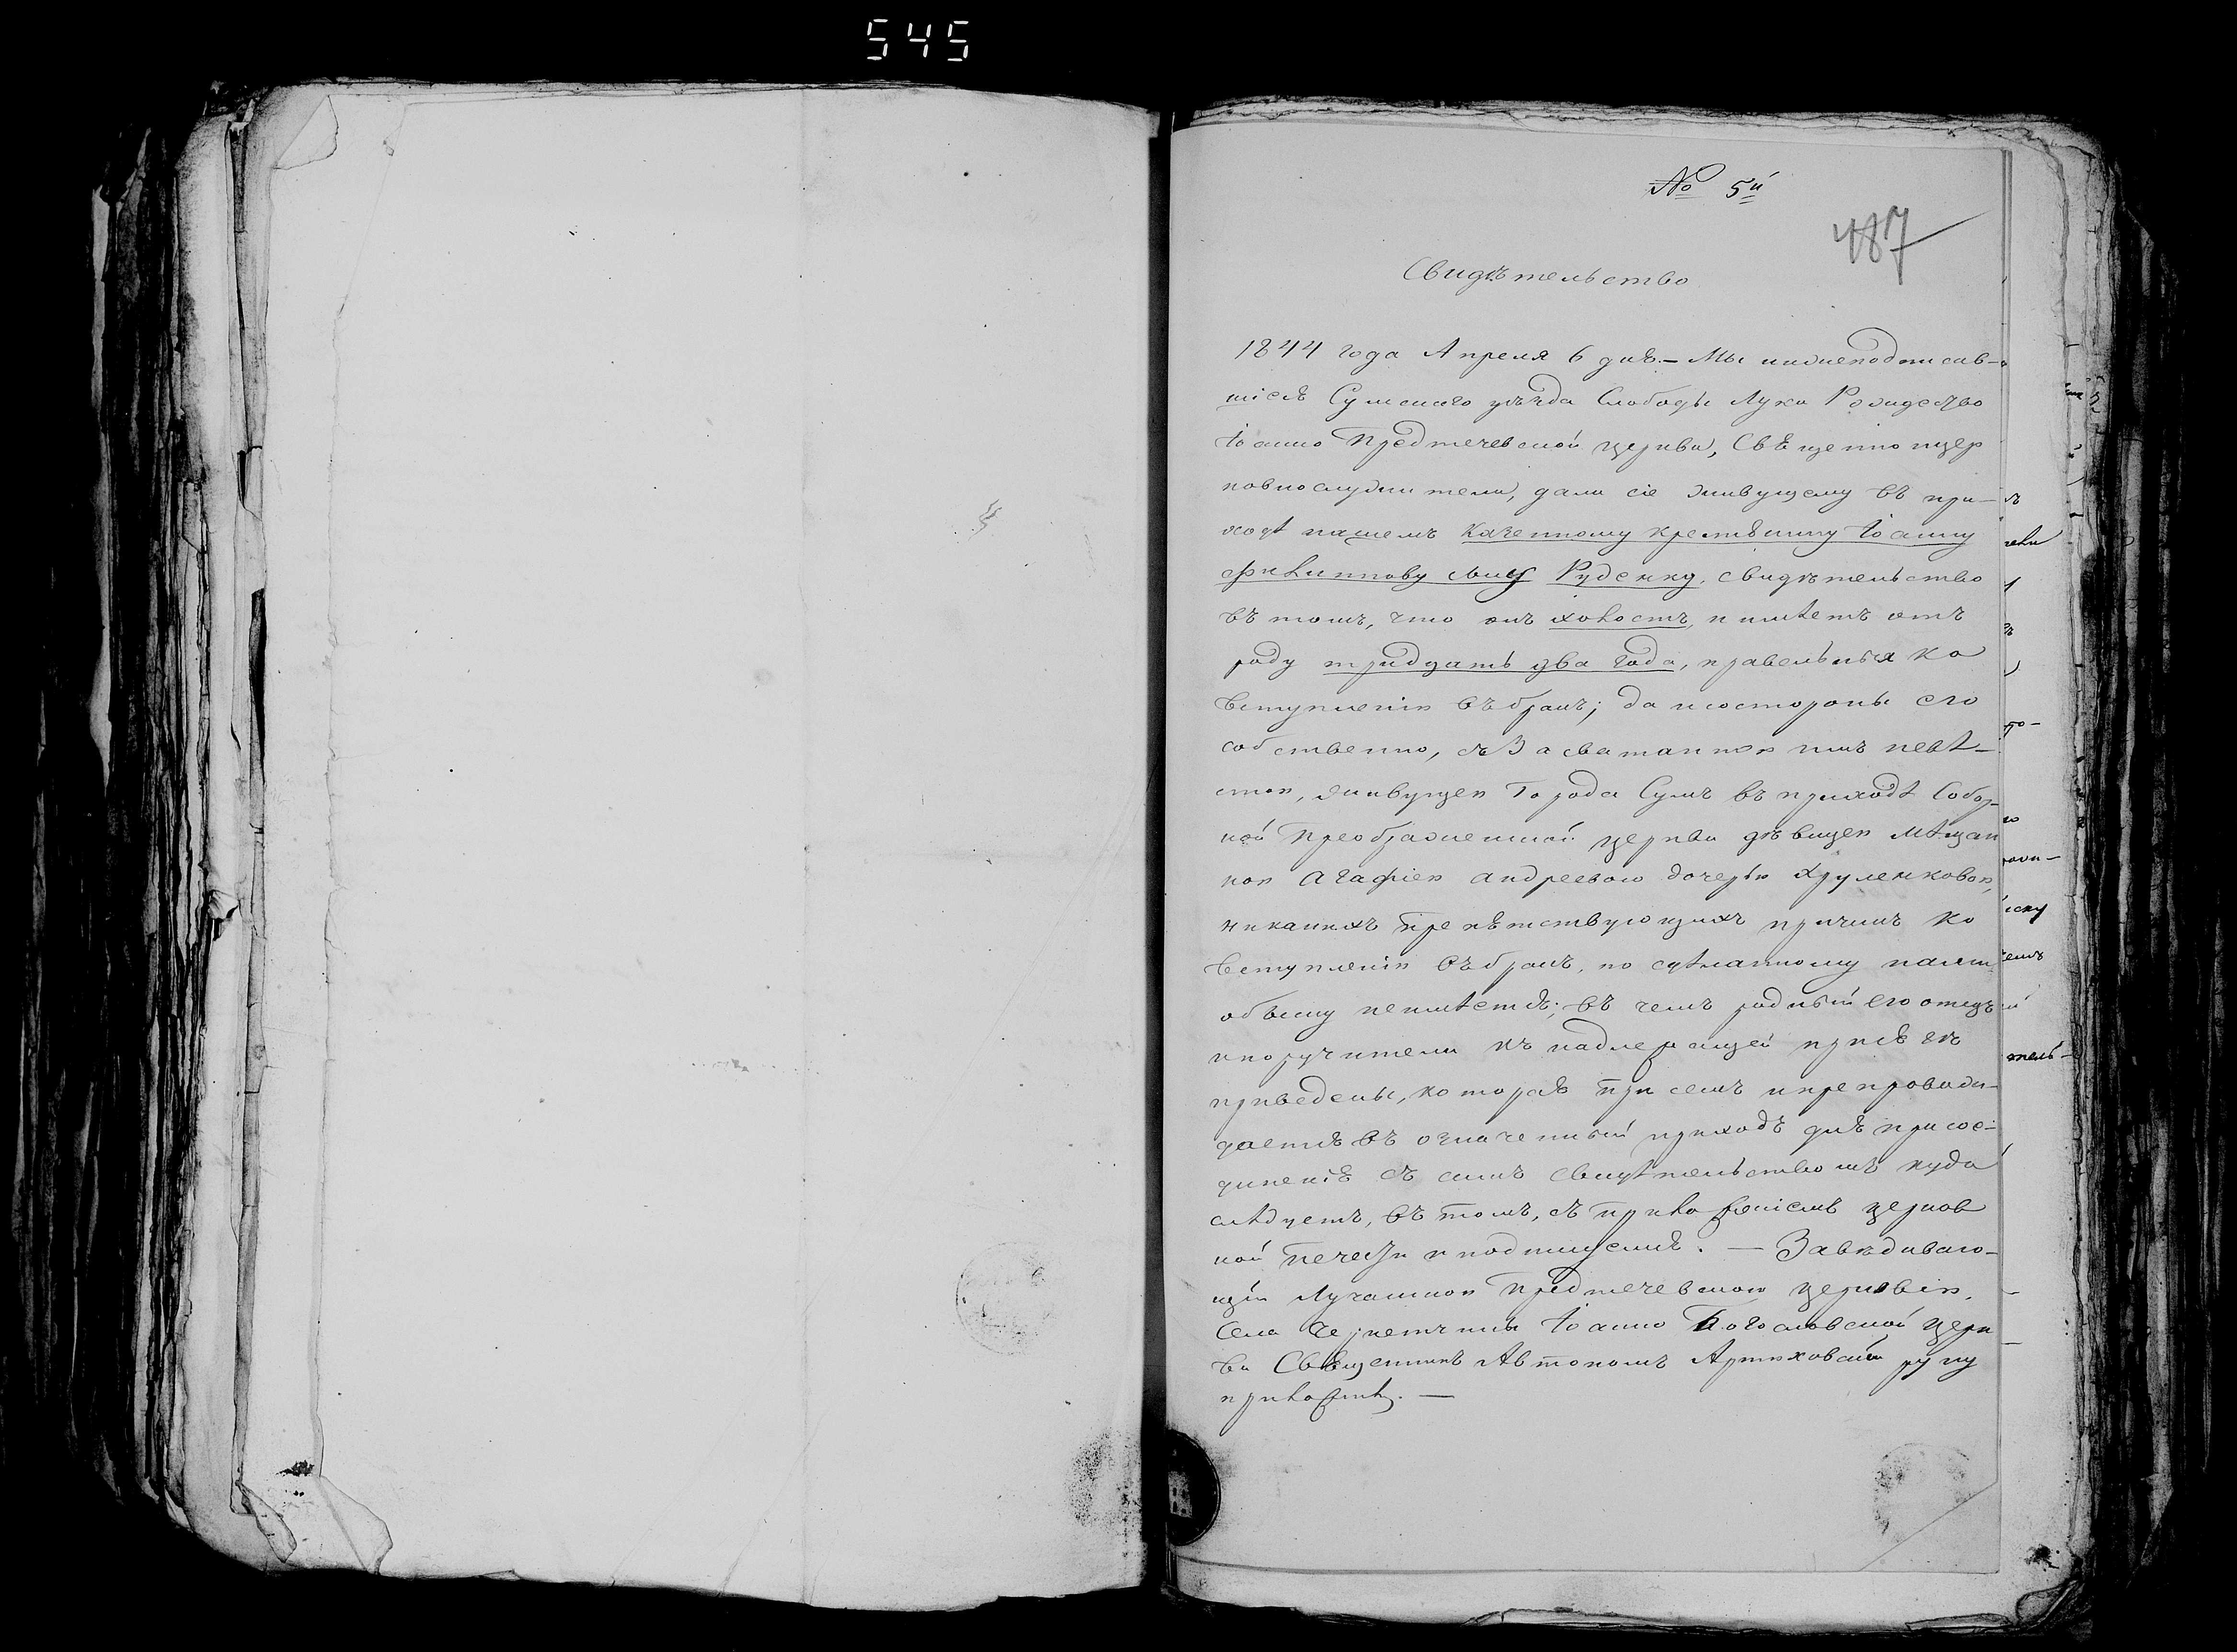 545
№ 5й
487
Свидѣтельство
1844 года Апреля 6 дня. — Мы нижеподписав-
шіеся Сумскаго уѣзда Слободы Луки Рождество
Іоанно Предтечевской церкви, Священноцер
ковнослужители, дали сіе живущему въ при-
ходѣ нашемъ Казенному крестьянину Іоанну
Филиппову сыну Руденку, свидѣтельство
въ томъ, что онъ холостъ, и имѣетъ отъ
роду тридцать два года, правельныя ко
вступленію въ бракъ; да и состороны его
собственно, съ Засватанною имъ невѣ-
стою, живущею Города Сумъ въ приходѣ Собор-
ной Преображенской церкви дѣвицею Мѣщан
кою Агафіею Андреевою дочерью Хруленковою,
никакихъ препятствующихъ причинъ ко
вступленію въ бракъ, по сдѣланному нами
обыску неимѣется; въ чемъ родный его отецъ
и поручители къ надлежащей присягѣ
приведены, которая при семъ и препровож-
дается въ означенный приходъ для присое-
диненія съ симъ свидѣтельствомъ куда
слѣдуетъ, въ томъ, съ приложеніемъ церков
ной печати и подпишемся. — Завѣдываю-
щій Лучанскою Предтечевскою церковію,
Села Іоанно Богословской церк
ви Священникъ Автономъ Артюховскій руку
приложилъ. —